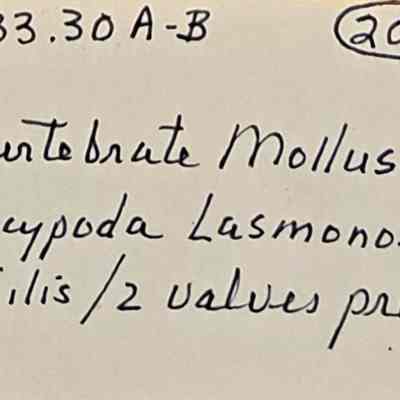 33.30 A-B 20
urtebrate Mollus
cypoda Lasmono
ilis / 2 valves pr